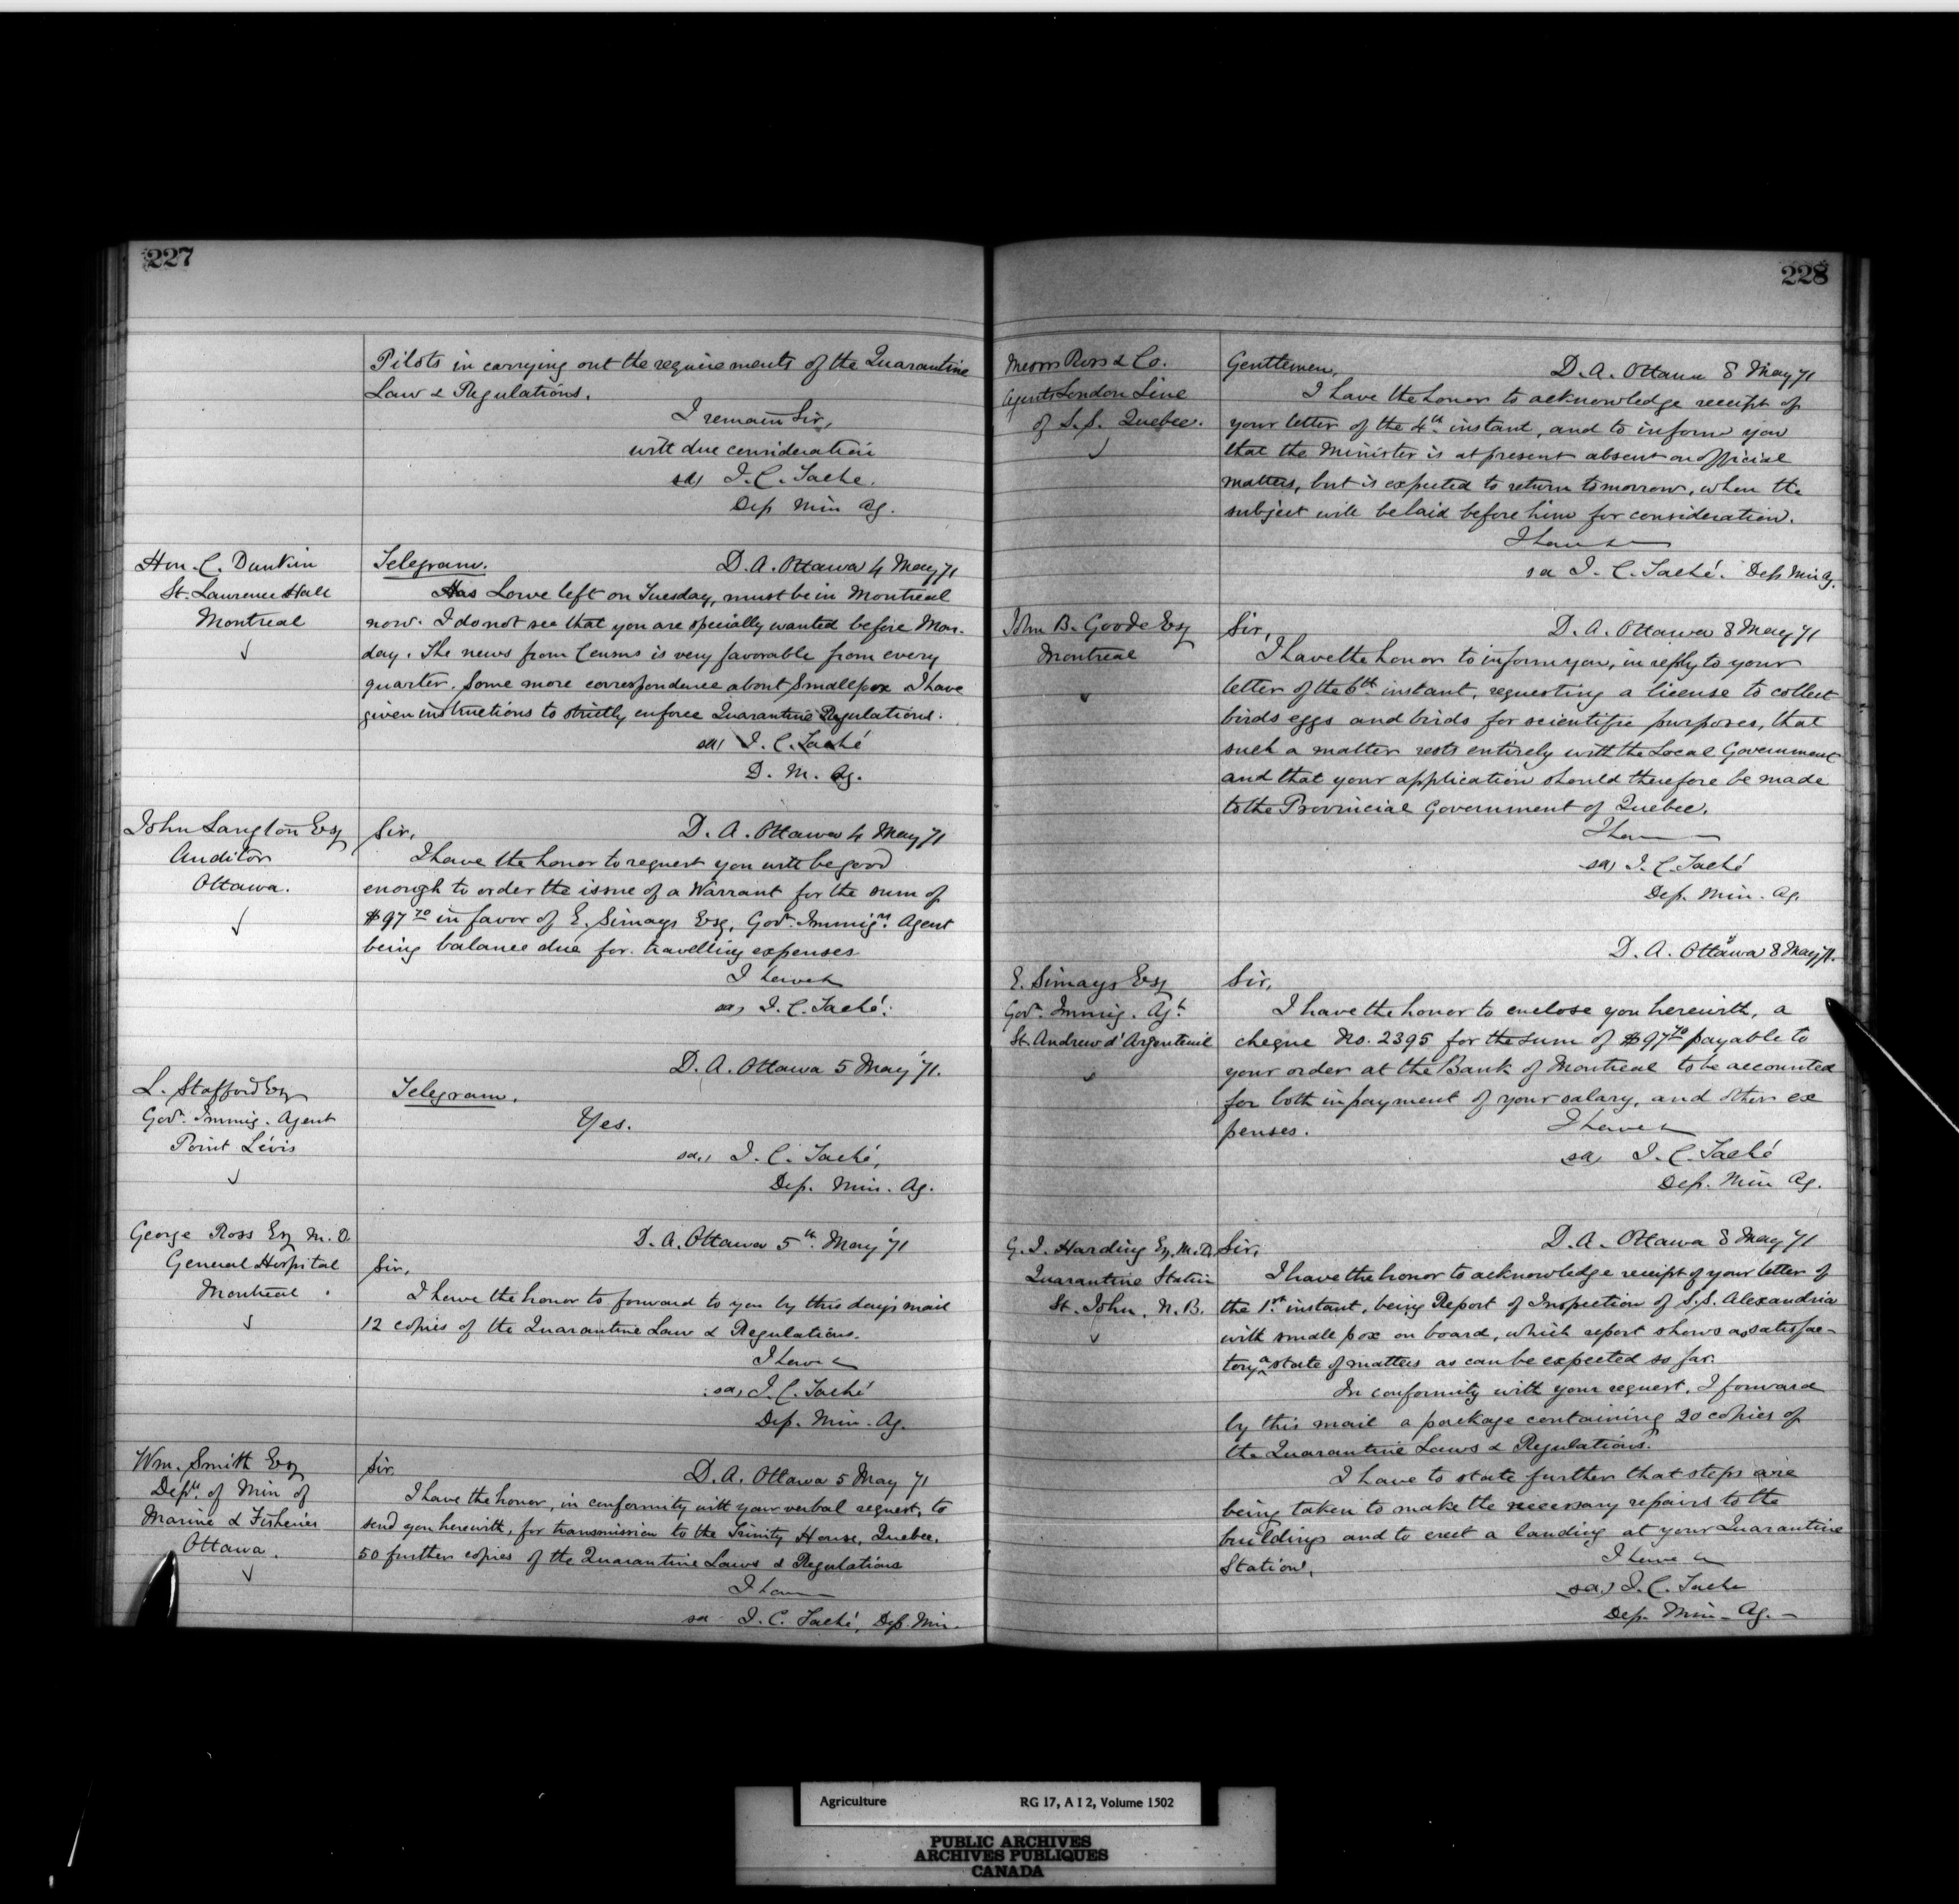 227
Pilots in carrying out the requirements of the Quarantine
Law & Regulations.
I remain Sir,
with due consideration
sd, J. C. Taché.
Dep Min Ag.
Hon. C. Dunkin
St. Lawrence Hall
Montreal
Telegram. D. A. Ottawa 4 May 71
Has Lowe left on Tuesday, must be in Montreal
now. I do not see that you are specially wanted before Mon-
day. The news from Census is very favorable from every
quarter. Some more correspondence about Smallpox I have
given instructions to strictly enforce Quarantine Regulations.
sd, J. C. Taché
D. M. Ag.
John Langton Esq
Auditor
Ottawa.
Sir, D. A. Ottawa 4 May 71
I have the honor to request you will be good
enough to order the issue of a Warrant for the sum of
$97 70 in favor of E. Simays Esq, Govt. Immign. Agent
being balance due for travelling expenses
I have
sd, J. C. Taché.
L. Stafford Esq
Govt. Immig. Agent
Point Lévis
D. A. Ottawa 5 May '71.
Telegram.
Yes.
sd., J. C. Taché,
Dep. Min. Ag.
George Ross Esq M.D.
General Hospital
Montreal.
D. A. Ottawa 5th May '71
Sir,
I have the honor to forward to you by this day's mail
12 copies of the Quarantine Law & Regulations.
I have
sd, J. C. Taché
Dep. Min. Ag.
Wm. Smith Esq
Depty. of Min of
Marine & Fisheries
Ottawa.
Sir. D. A. Ottawa 5 May 71
I have the honor, in conformity with your verbal request, to
send you herewith, for transmission to the Trinity House, Quebec,
50 further copies of the Quarantine Laws & Regulations
I have
sd J. C. Taché, Dep. Min.
228
Messrs Ross & Co.
Agents London Line
of S.S. Quebec.
Gentlemen, D. A. Ottawa 8 May 71
I have the honor to acknowledge receipt of
your letter of the 4th instant, and to inform you
that the Minister is at present absent on official
matters, but is expected to return tomorrow, when the
subject will be laid before him for consideration.
I have
sd J. C. Taché. Dep Min Ag.
John B. Goode Esq
Montreal
Sir, D. A. Ottawa 8 May 71
I have the honor to inform you, in reply to your
letter of the 6th instant, requesting a license to collect
birds eggs and birds for scientific purposes, that
such a matter rests entirely with the Local Government
and that your application should therefore be made
to the Provincial Government of Quebec.
I have
sd, J. C. Taché
Dep. Min. Ag.
D. A. Ottawa 8 May 71.
E. Simays Esq
Govt. Immig. Agt.
St. Andrew d'Argenteuil
Sir,
I have the honor to enclose you herewith, a
cheque No. 2395 for the sum of $97 70 payable to
your order at the Bank of Montreal to be accounted
for both in payment of your salary, and other ex
penses. I have
sd, J. C. Taché
Dep. Min Ag.
G. J. Harding Esq. M.D.
Quarantine Station
St. John, N.B.
Sir, D. A. Ottawa 8 May 71
I have the honor to acknowledge receipt of your letter of
the 1st instant, being Report of Inspection of S.S. Alexandria
with small pox on board, which report shows as satisfac-
tory a state of matters as can be expected so far.
In conformity with your request, I forward
by this mail a package containing 20 copies of
the Quarantine Laws & Regulations.
I have to state further that steps are
being taken to make the necessary repairs to the
buildings and to erect a landing at your Quarantine
Station. I have
sd, J. C. Taché
Dep. Min. Ag.
Agriculture RG 17, A I 2, Volume 1502
PUBLIC ARCHIVES
ARCHIVES PUBLIQUES
CANADA